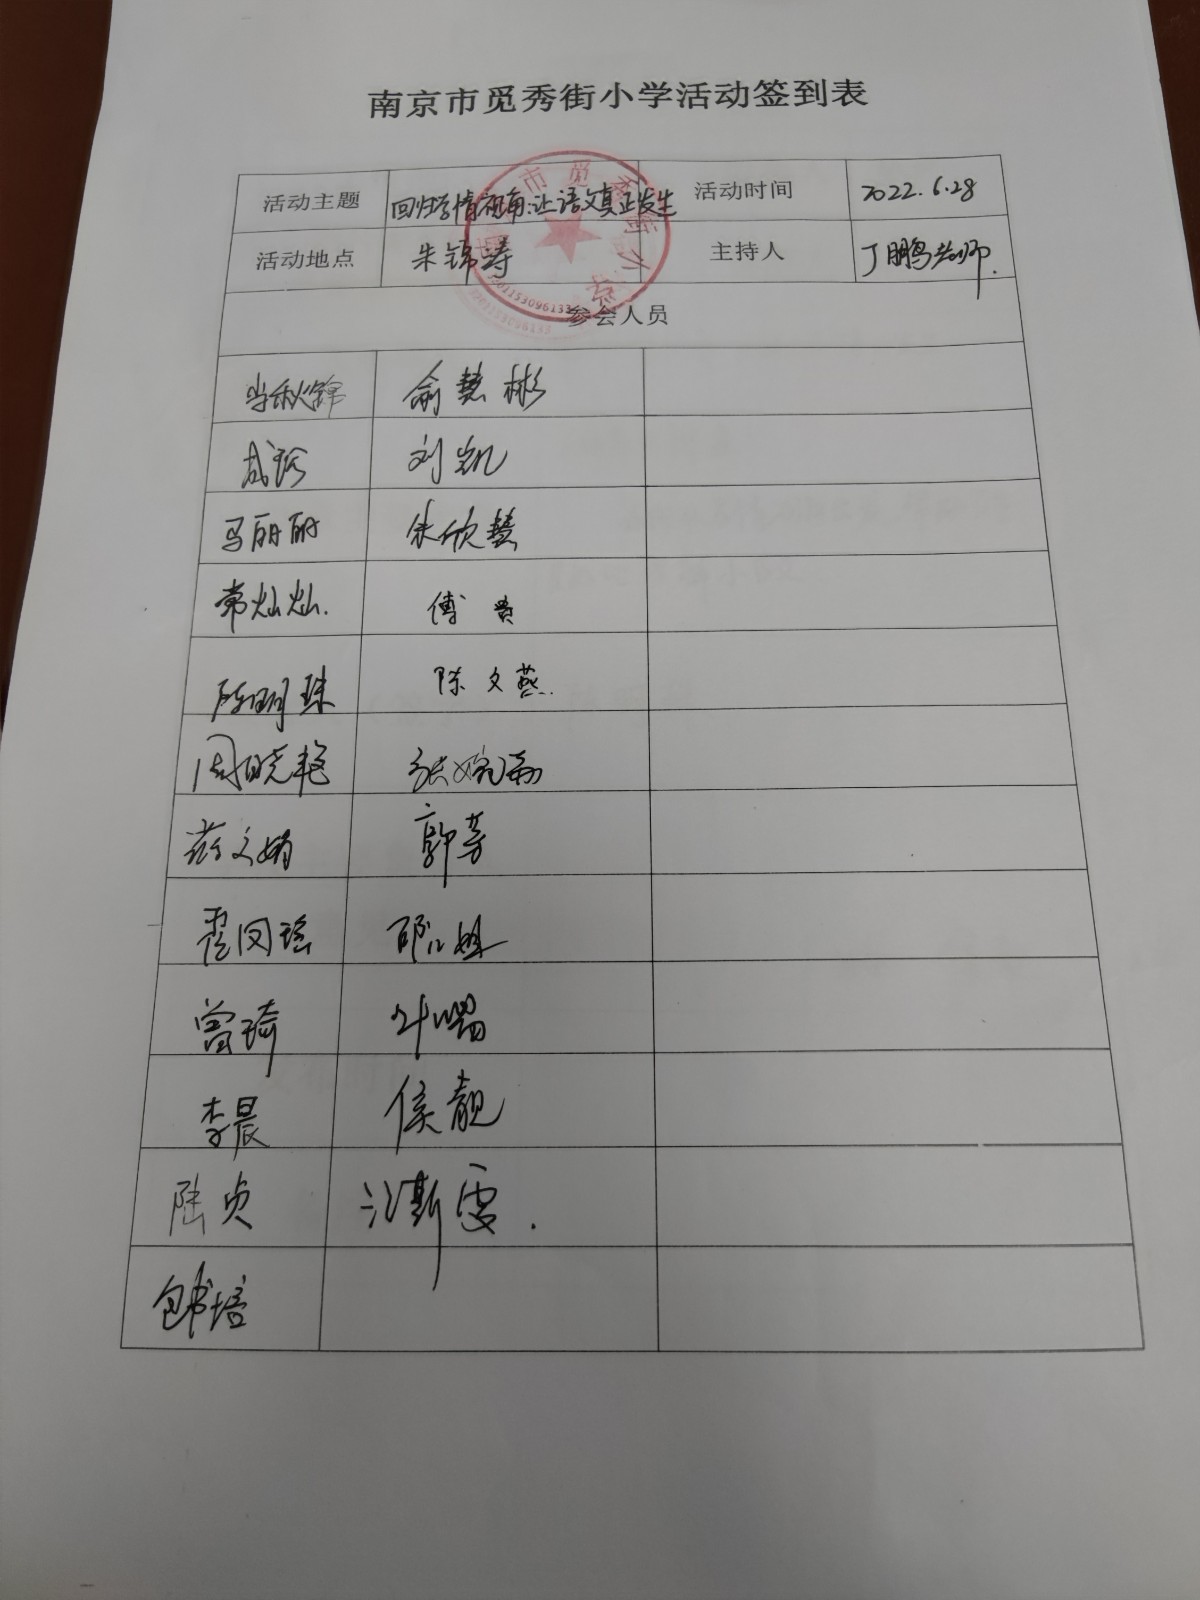 南京市觅秀街小学活动签到表
活动主题 回归学情视角:让语文真正发生 活动时间 2022.6.28
活动地点 朱锦涛 主持人 丁鹏老师.
参会人员
俞慧彬
刘凯
马丽丽 朱欣慧
常灿灿. 傅贵
陈明珠 陈文燕.
周晓艳 张婉
蒋文娟 郭芳
霍闵瑶
曾琦 叶
李晨 侯靓
陆贞 江斯雯.
包书培